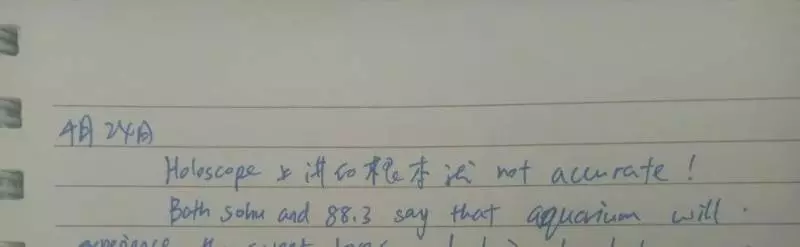 4月24日
Holoscope 上讲的根本就 not accurate !
Both sohu and 88.3 say that aquarium will
experience the sweet